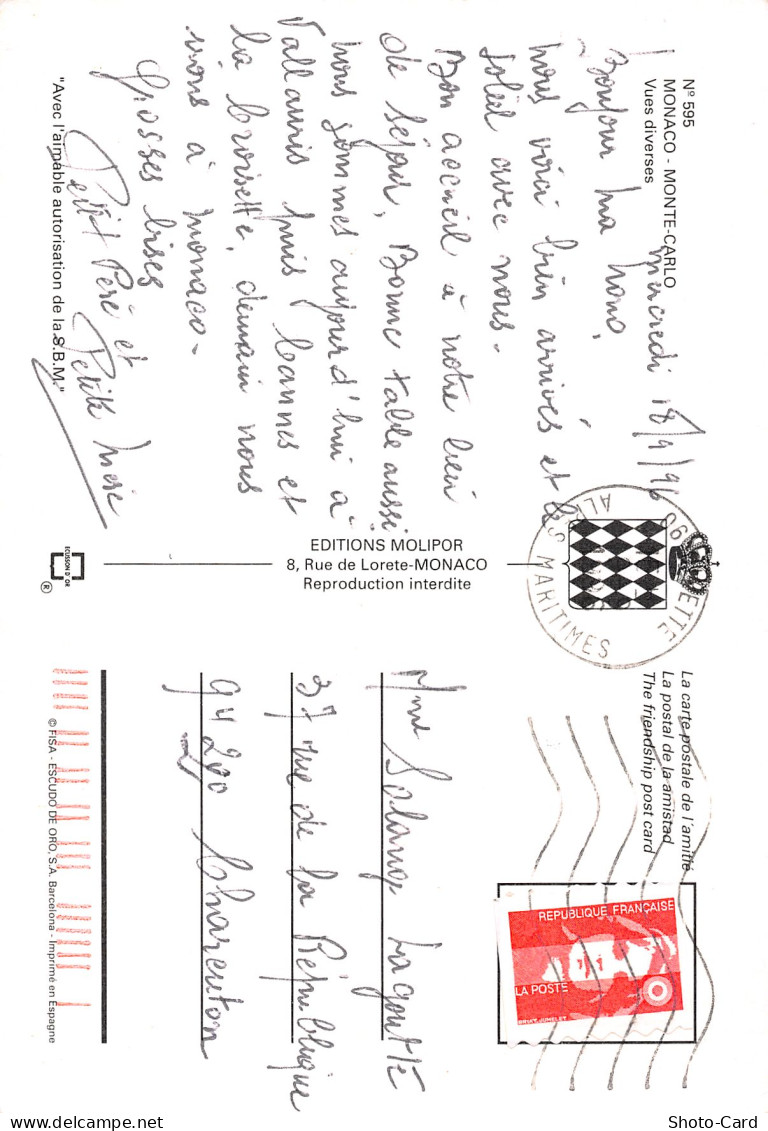 N° 595
MONACO - MONTE-CARLO
Vues diverses
Mercredi 18/9/96
Bonjour ma
Nous voici bien arrivés et le
soleil avec nous.
Bon accueil à notre lieu
de séjour, Bonne table aussi
Nous sommes aujourd'hui à
Vallauris puis Cannes et
la Croisette, demain nous
irons à Monaco.
Grosses bises
Petit Père et
Petite Mère
"Avec l'aimable autorisation de la S.B.M."
EDITIONS MOLIPOR
8, Rue de Lorete-MONACO
Reproduction interdite
ECUSSON D'OR
®
ALPES MARITIMES
La carte postale de l'amitié
La postal de la amistad
The friendship post card
REPUBLIQUE FRANÇAISE
LA POSTE
BRIAT-JUMELET
Mme Solange Lagoutte
37 rue de la République
94200 Charenton
© FISA - ESCUDO DE ORO, S.A. Barcelona - Imprimé en Espagne
Shoto-Card